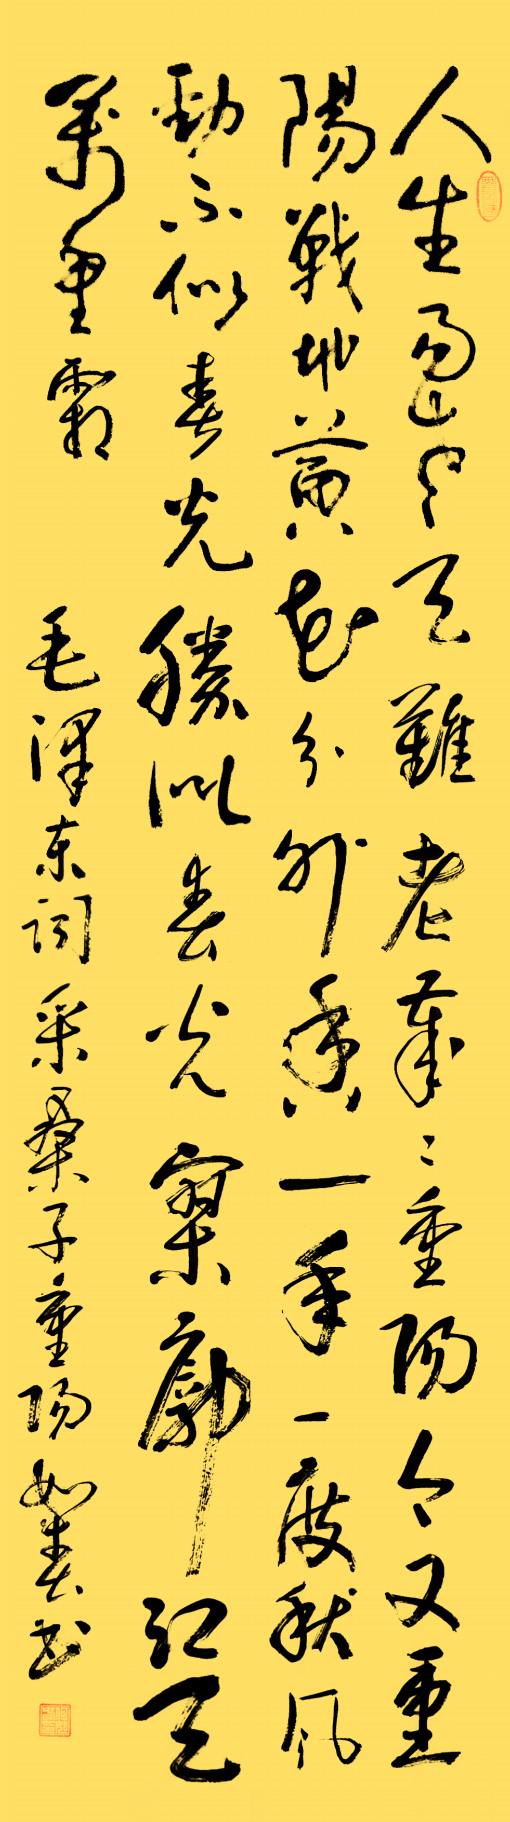 人生易老天難老歲〻重陽今又重
陽戰地黃花分外香一年一度秋風
勁不似春光勝似春光寥廓江天
萬里霜 毛澤东詞采桑子重陽 如 书